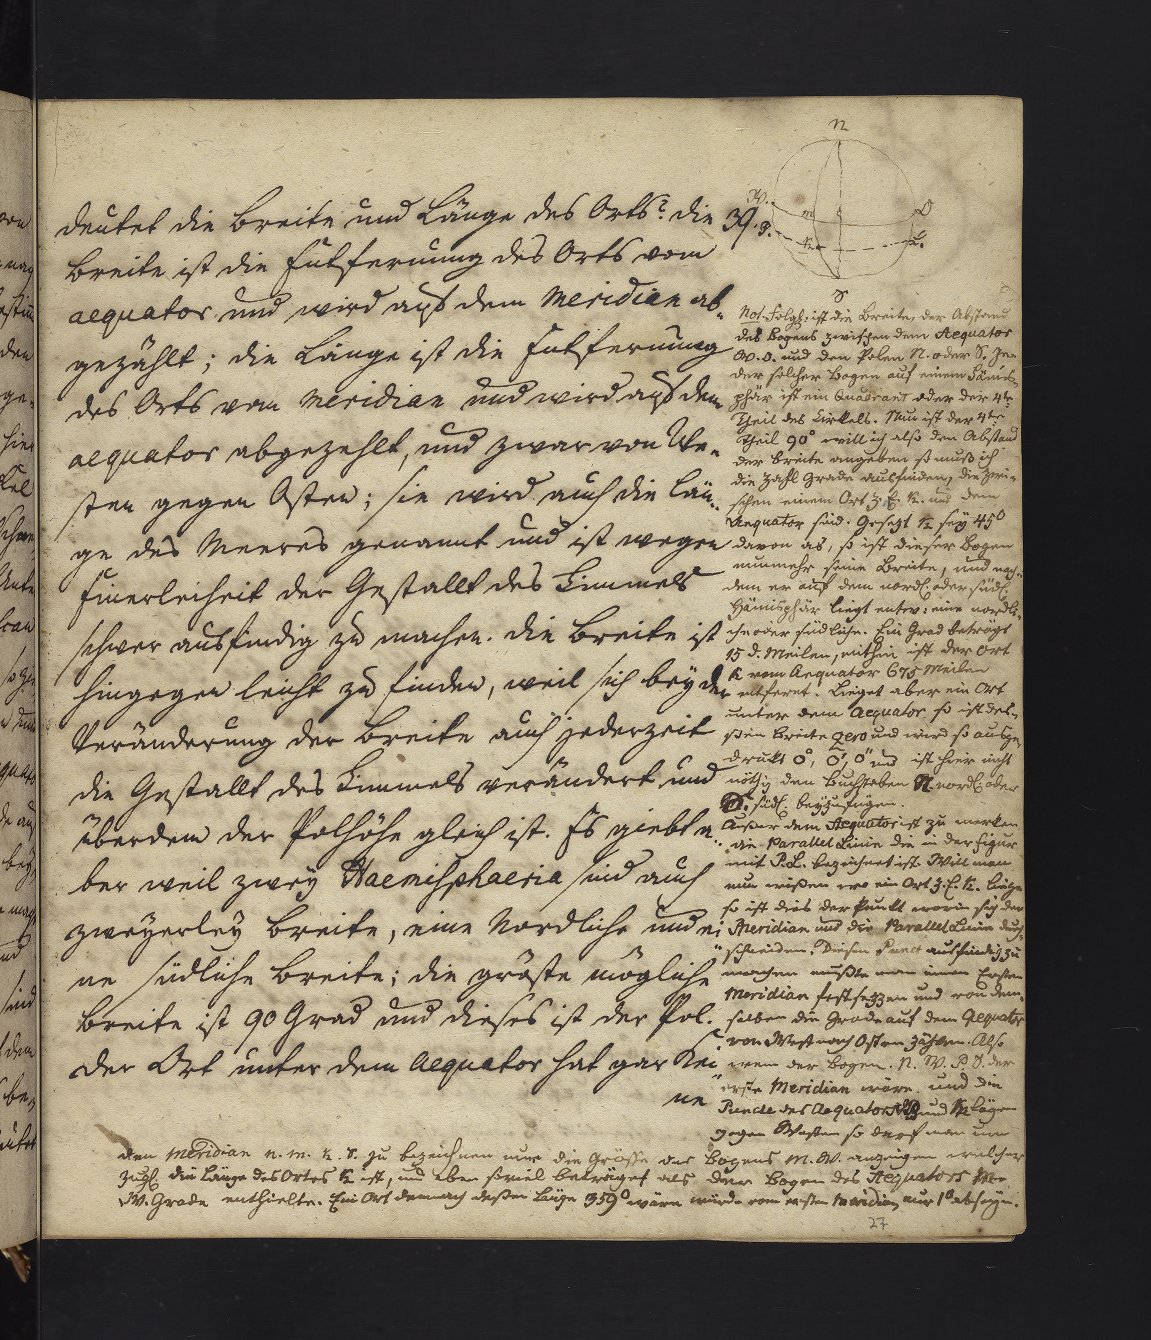 deutet die Breite und Länge des Orts. die
Breite ist die Entfernung des Orts vom
aequator und wird aus dem Meridian ab-
gezählt; die Länge ist die Entfernung
des Orts vom Meridian und wird aus dem
aequator abgezehlt, und zwar von We-
sten gegen Osten; sie wird auch die Län-
ge des Meeres genannt und ist wegen
Einerleiheit der Gestallt des Himmels
schwer ausfindig zu machen. die Breite ist
hingegen leicht zu finden, weil sich bey der
Veränderung der Breite auch jederzeit
die Gestallt des Himmels verändert und
überdem der Polhöhe gleich ist. Es giebt a-
ber weil zwey Haemisphaeria sind auch
zweyerley Breite, eine Nordliche und ei
ne südliche Breite; die gröste mögliche
Breite ist 90 Grad und dieses ist der Pol.
der Ort unter dem Aequator hat gar kei
ne
N
W.
m
O
P.
K
L.
S
Not. Folgl. ist die Breite, der Abstand
des Bogens zwischen dem Aequator
W. O. und den Polen N. oder S. Je-
der solcher Bogen auf einem Hämis-
phär ist ein Quadrant oder der 4te
Theil des Cirkels. Nun ist der 4te
Theil 90° will ich also den Abstand
der Breite angeben so muß ich
die Zahl Grade ausfinden, die zwi-
schen einem Ort z. E. K. und dem
Aequator sind. Gesezt K sey 45°
davon ab, so ist dieser Bogen
nunmehr seine Breite, und nach-
dem er auf dem nordl. oder südl.
Hämisphär liegt entw: eine nordli-
che oder südliche. Ein Grad beträgt
15 d. Meilen, mithin ist der Ort
K vom Aequator 675 Meilen
entfernt. Lieget aber ein Ort
unter dem Aequator so ist des-
sen Breite Zero und wird so ausge-
drukt 0°, 0', 0'' und ist hier nicht
nöthig den Buchstaben N. nordl. oder
S. südl. beyzufügen.
Außer dem Aequator ist zu merken
die Parallel Linie die in der Figur
mit P. L. bezeichnet ist. Will man
nun wißen wo ein Ort z. E. K. liege
so ist dies der Punkt worin sich der
Meridian und die Parallel Linie durch-
schneiden. Diesen Punct ausfindig zu
machen mußte man einen Ersten
Meridian festsetzen und von dem-
selben die Grade auf dem Aequator
von West nach Osten zählen. Also
wenn der Bogen. N. W. P. S. der
erste Meridian wäre, und die
Puncte des Aequators und K lägen
gegen Westen so darf man um
den Meridian n. m. K. S. zu bezeichnen nur die Größe des Bogens M. W. anzeigen welcher
zugl. die Länge des Ortes K ist, und eben soviel beträget als der Bogen des Aequators M.
W. Grade enthielte. Ein Ort demnach deßen Länge 359° wäre würde vom ersten Meridian nur 1° abseyn.
27